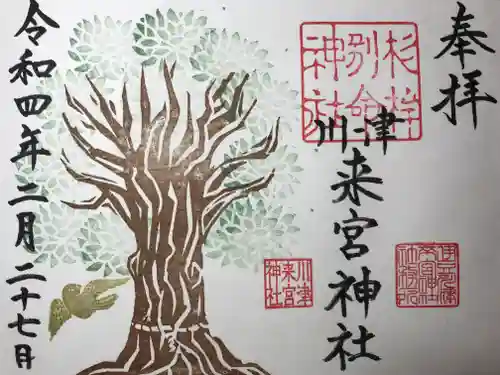 奉拝
川津来宮神社
杉桙
別命
神社
川津
来宮
神社
令和四年二月二十七日